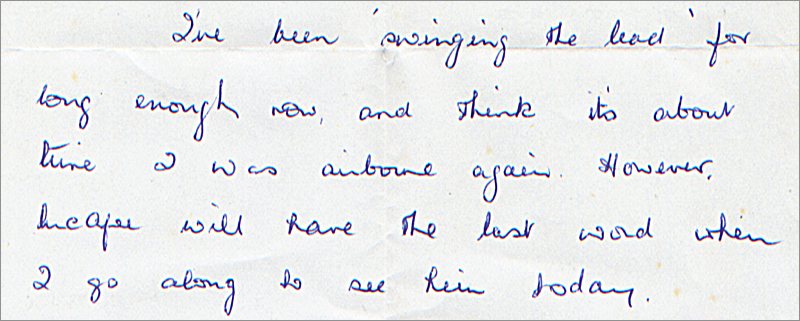 I've been 'swinging the lead' for
long enough now, and think it's about
time I was airborne again. However,
will have the last word when
I go along to see him today.